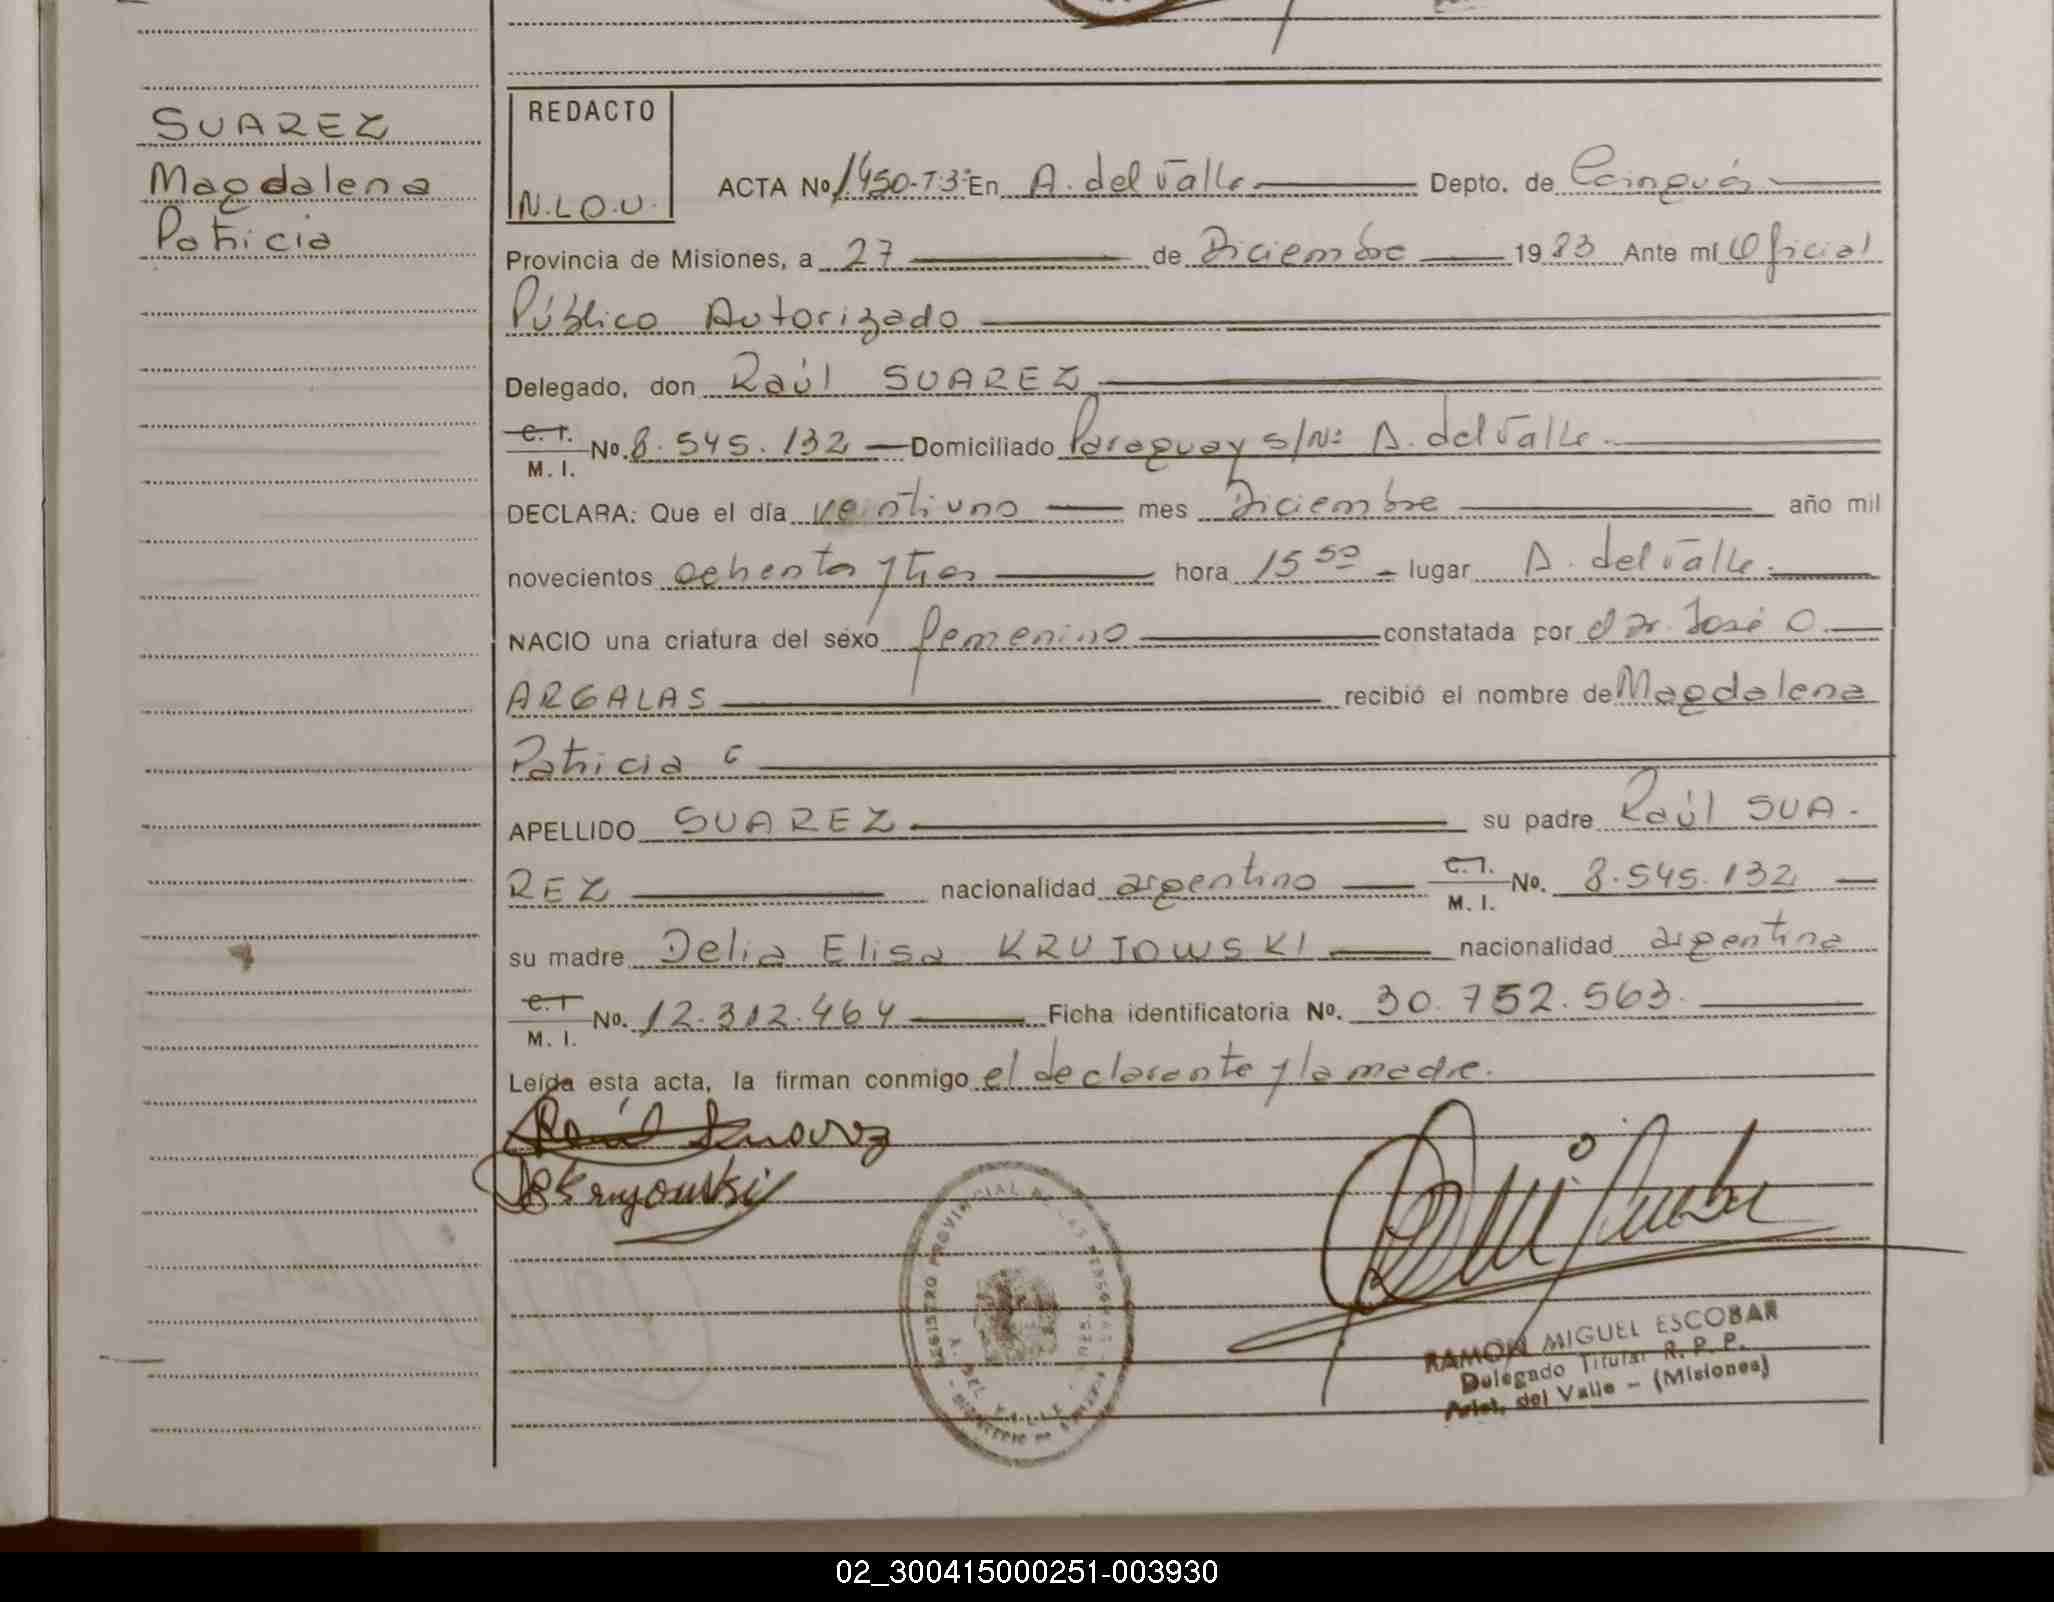 SUAREZ
Magdalena
Patricia
REDACTO
N.L.O.U.
ACTA Nº 1.450-T.3º En A. del Valle Depto. de Cainguás
Provincia de Misiones, a 27 de Diciembre 1983 Ante mí Oficial
Público Autorizado
Delegado, don Raúl SUAREZ
C. I. M. I. No. 8.545.132 Domiciliado Paraguay s/Nº A. del Valle.
DECLARA: Que el día veintiuno mes Diciembre año mil
novecientos ochenta y tres hora 15 50 lugar A. del Valle.
NACIO una criatura del sexo femenino constatada por el Dr. José O.
ARGALAS recibió el nombre de Magdalena
Patricia
APELLIDO SUAREZ su padre Raúl SUA-
REZ nacionalidad argentino C.I. M. I. No. 8.545.132
su madre Delia Elisa KRUJOWSKI nacionalidad argentina
C. I M. I. No. 12.312.464 Ficha identificatoria No. 30.752.563.
Leída esta acta, la firman conmigo el declarante y la madre.
Raúl Suarez
DEKrujowski
REGISTRO PROVINCIAL DE LAS PERSONAS
A. DEL VALLE
RAMON MIGUEL ESCOBAR
Delegado Titular R. P. P.
Arist. del Valle - (Misiones)
02_300415000251-003930